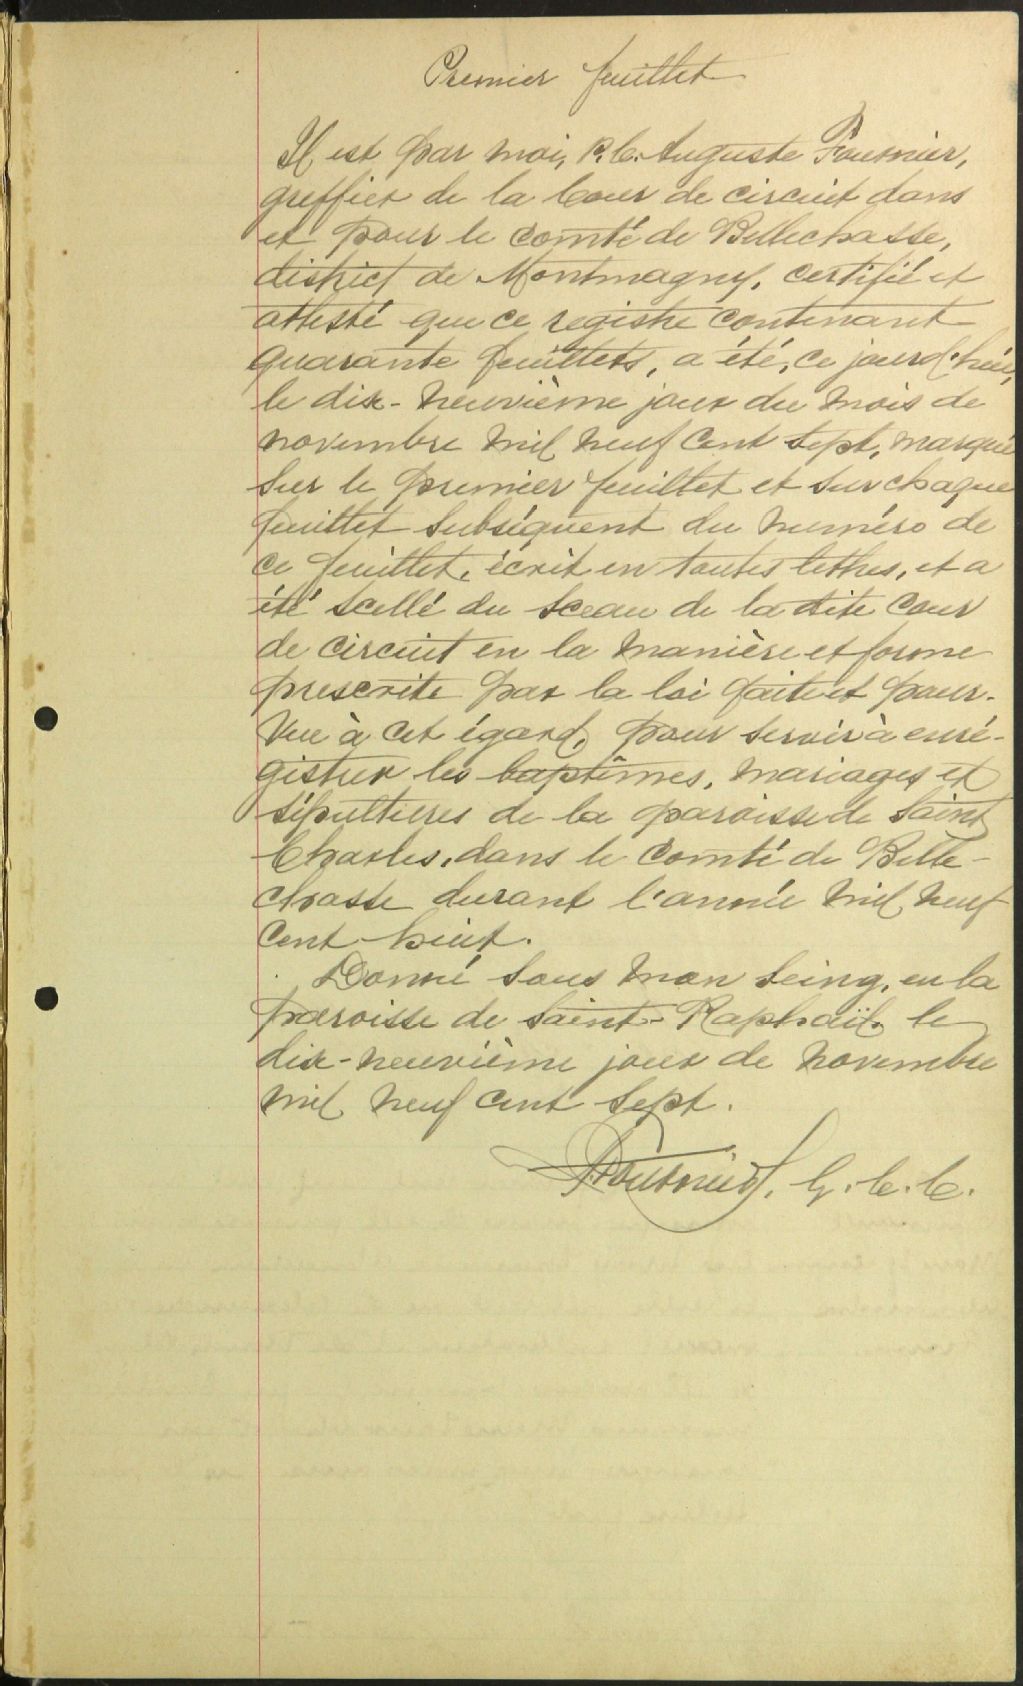 Premier feuillet
Il est par moi, P. C. Auguste Fournier,
greffier de la Cour de circuit dans
et pour le comté de Bellechasse,
district de Montmagny, certifié et
attesté que ce registre contenant
quarante feuillets, a été, ce jourd'hui,
le dix-neuvième jour du mois de
novembre mil neuf cent sept, marqué
sur le premier feuillet et sur chaque
feuillet subséquent du numéro de
ce feuillet, écrit en toutes lettres, et a
été scellé du sceau de la dite Cour
de circuit en la manière et forme
prescrite par la loi faite et pour-
vue à cet égard, pour servir à enré-
gistrer les baptêmes, mariages et
sépultures de la paroisse de Saint
Charles, dans le comté de Belle-
chasse durant l'année mil neuf
cent huit.
Donné sous mon seing, en la
paroisse de Saint-Raphaël, le
dix-neuvième jour de novembre
mil neuf cent sept.
Fournier, G. C. C.